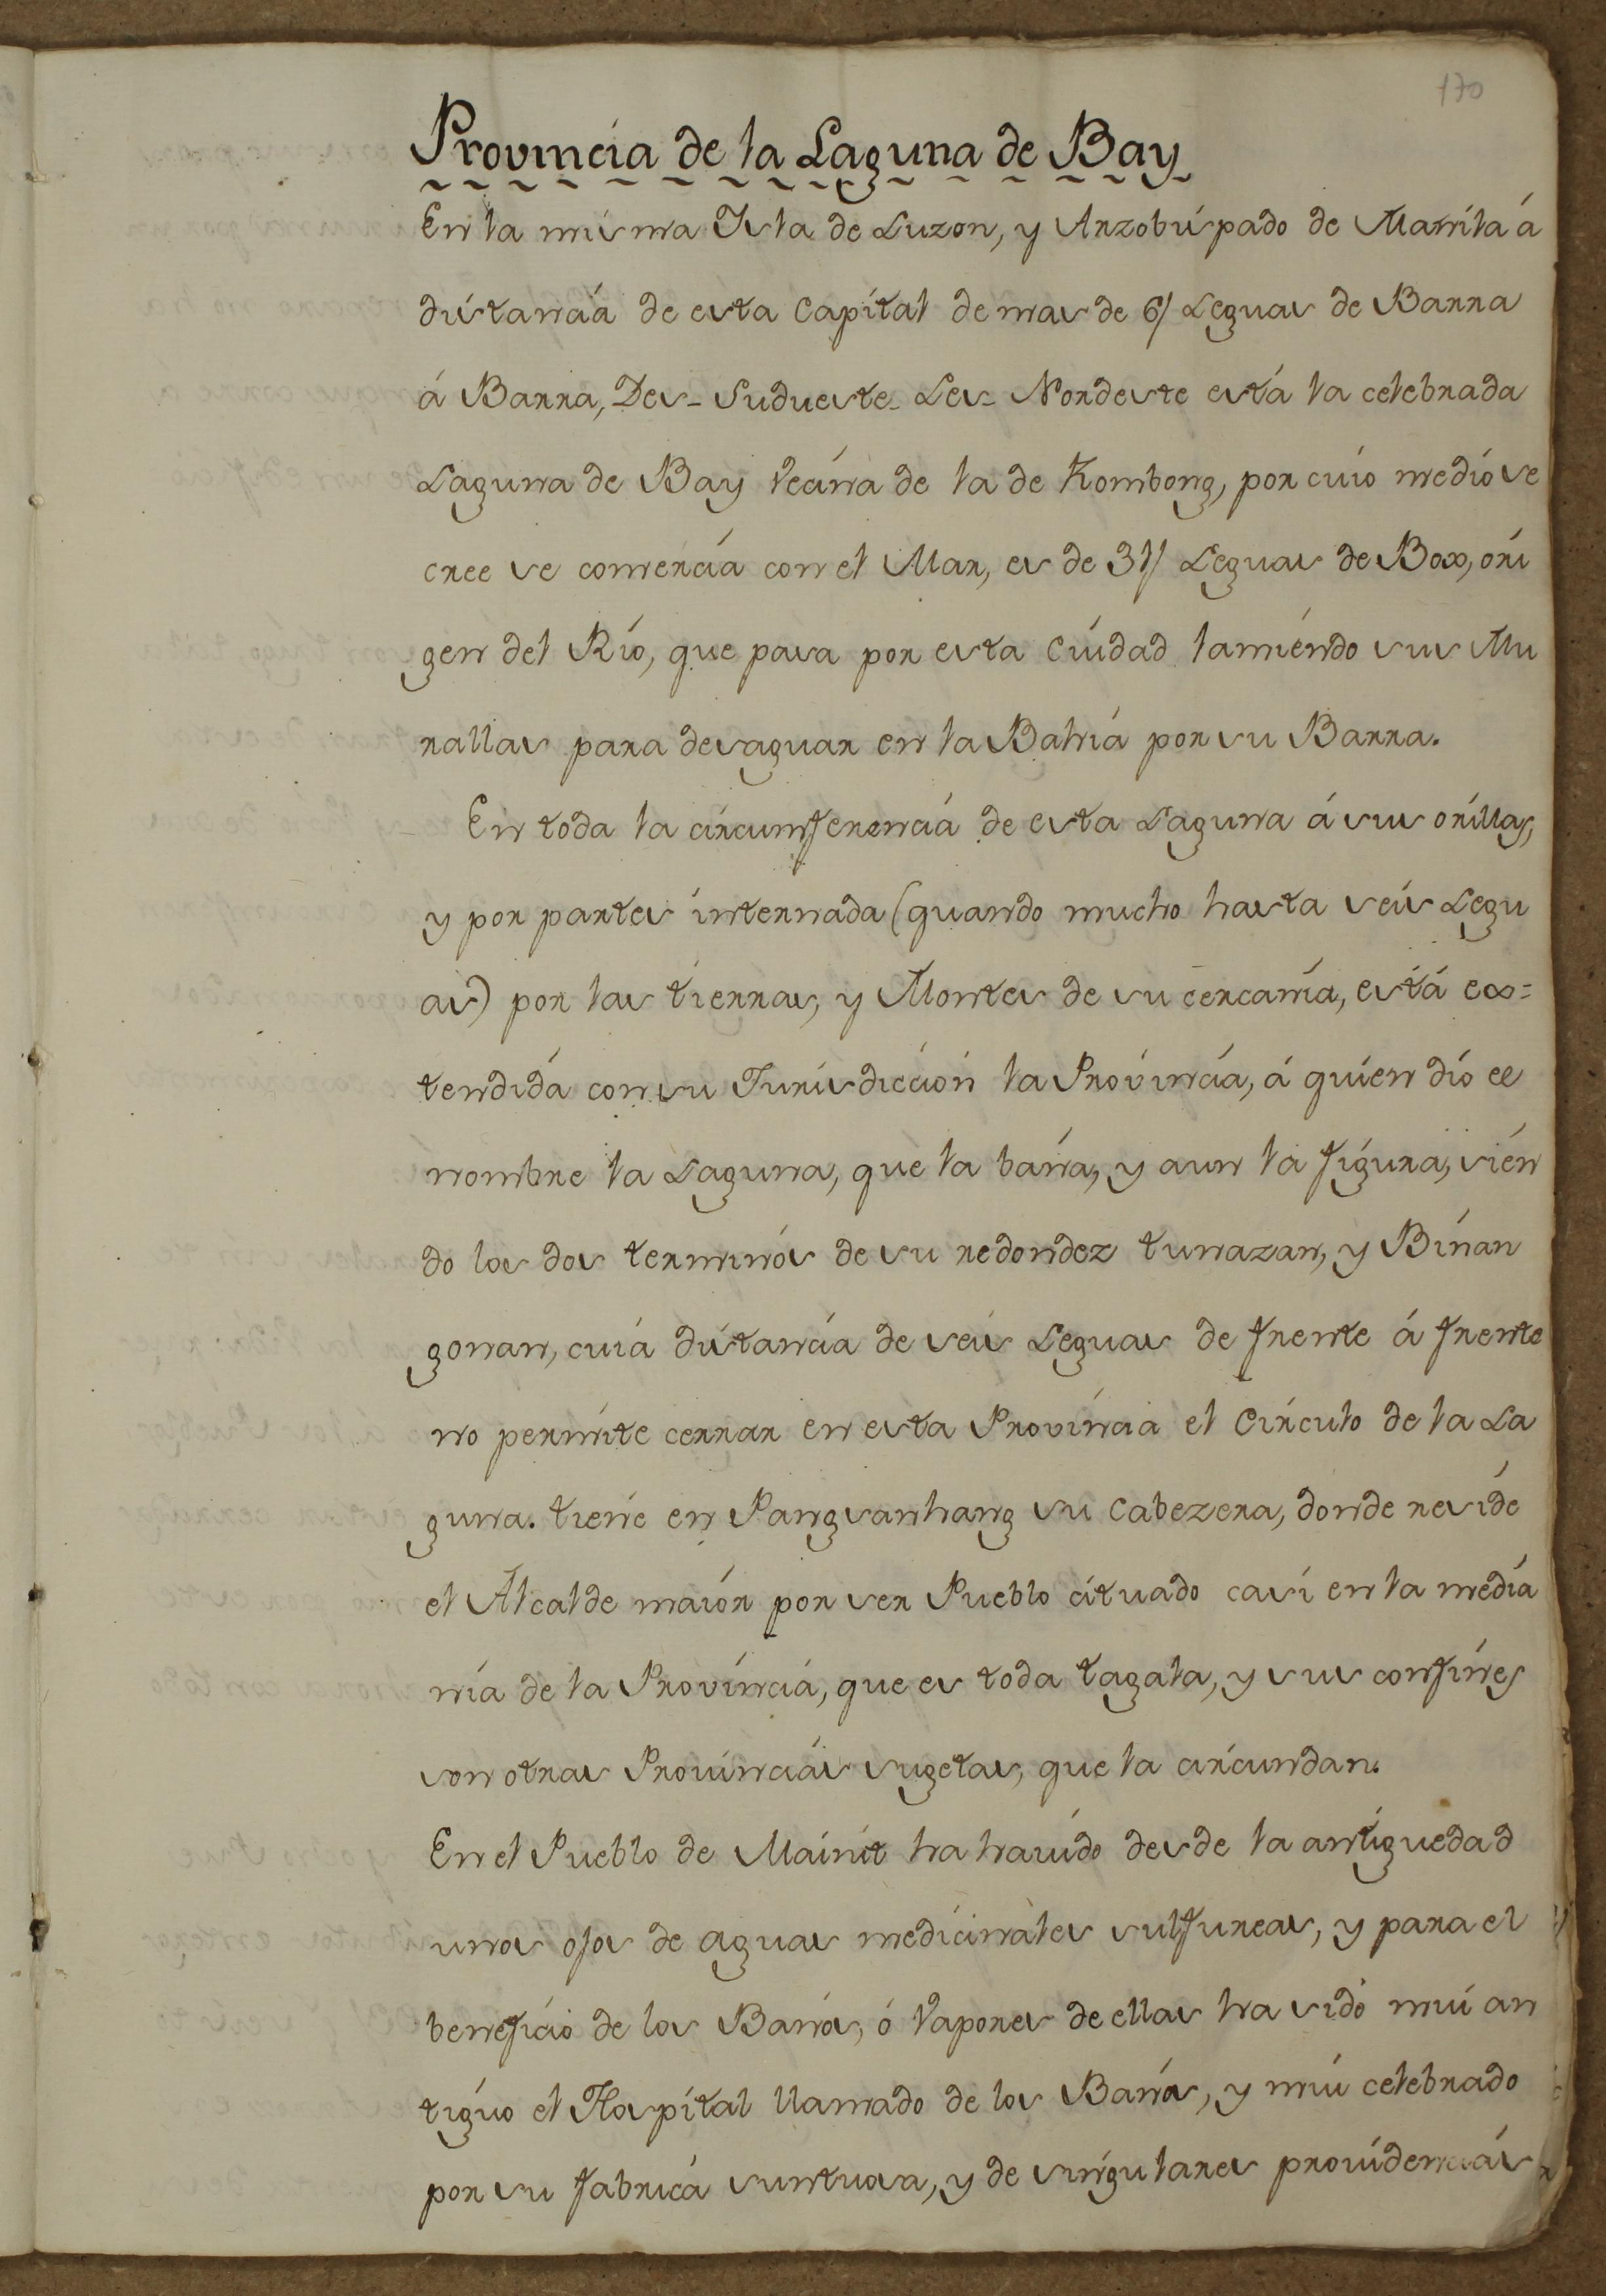 170
Provincia de la Laguna de Bay
En la misma Isla de Luzon, y Arzobispado de Manila á
distancia de esta Capital de mas de 6/ Leguas de Barra
á Barra, Des-Sudueste-Les-Nordeste está la celebrada
Laguna de Bay vecina de la de Bombong, por cuio medio se
cree se comercia con el Mar, es de 31/ Leguas de Box, ori
gen del Rio, que pasa por esta Ciudad lamiendo sus Mu
rallas para desaguar en la Bahia por su Barra.
En toda la circumferencia de esta Laguna á sus orillas,
y por partes internada (quando mucho hasta seis Legu
as) por las tierras, y Montes de su cercania, está ex=
tendida con su Jurisdiccion la Provincia, á quien dió el
nombre la Laguna, que la baña, y aun la figura, sien
do los dos terminos de su redondez tunazan, y Binan
gonan, cuia distancia de seis Leguas de frente á frente
no permite cerrar en esta Provincia el Circulo de la La
guna. tiene en Pangsanhang su Cabezera, donde reside
el Alcalde maior por ser Pueblo cituado casi en la media
nia de la Provincia, que es toda tagala, y sus confines
son otras Provincias sugetas, que la circundan.
En el Pueblo de Mainit ha havido desde la antiguedad
unos ojos de aguas medicinales sulfureas, y para el
beneficio de los Baños, ó Vapores de ellas ha sido mui an
tiguo el Hospital llamado de los Baños, y mui celebrado
por su fabrica suntuosa, y de singulares providencias